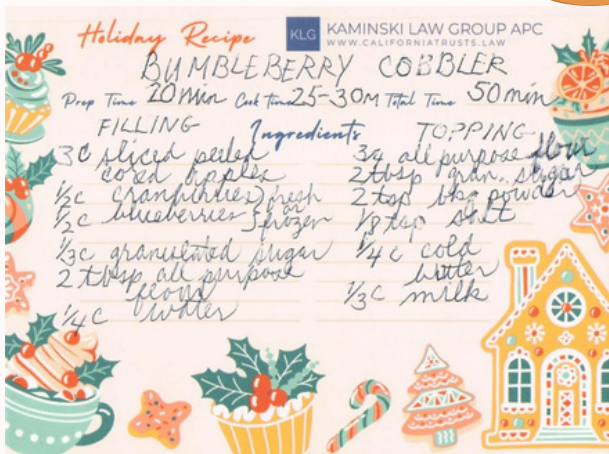 Holiday Recipe
KLG KAMINSKI LAW GROUP APC
WWW.CALIFORNIATRUSTS.LAW
BUMBLEBERRY COBBLER
Prep Time 20 min Cook Time 25-30M Total Time 50 min
Ingredients
FILLING
3 C sliced peeled
cored apples
1/2 c cranberries } fresh
or
1/2 c blueberries } frozen
1/3 c granulated sugar
2 tbsp all purpose
flour
1/4 c water
TOPPING
3/4 all purpose flour
2 tbsp gran. sugar
2 tsp bkg powder
1/8 tsp salt
1/4 c cold
butter
1/3 c milk